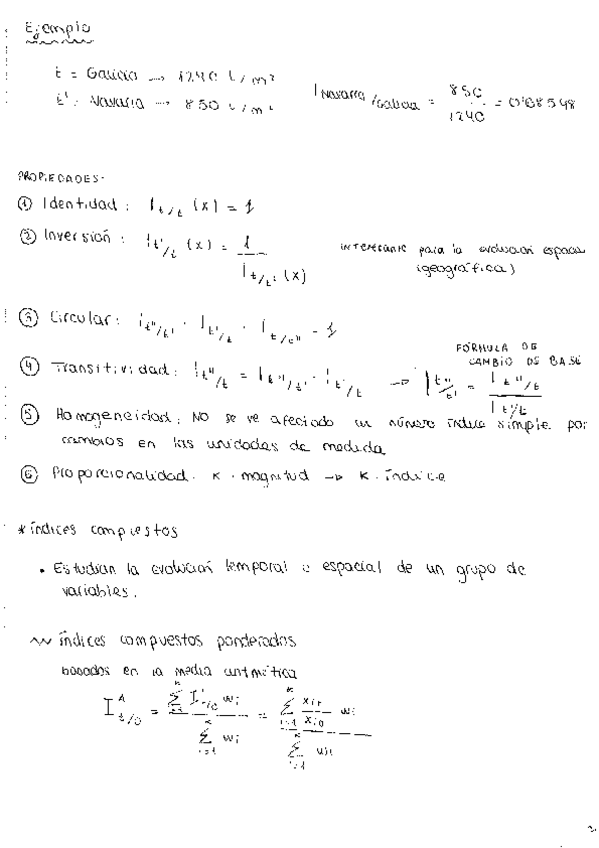 Ejemplo
t = Galicia → 1240 L/m²
t' = Navarra → 850 L/m²
I Navarra/Galicia = 850/1240 = 0'68548
PROPIEDADES:
① Identidad: I t/t (x) = 1
② Inversión: I t'/t (x) = 1 / I t/t' (x) interesante para la evolución espacial
(geográfica)
③ Circular: I t''/t' · I t'/t · I t/t'' = 1
FÓRMULA DE
CAMBIO DE BASE
④ Transitividad: I t''/t = I t''/t' · I t'/t → I t''/t' = I t''/t / I t'/t
⑤ Homogeneidad: NO se ve afectado un número índice simple por
cambios en las unidades de medida
⑥ Proporcionalidad. K · magnitud → K · índice
* índices compuestos
• Estudian la evolución temporal o espacial de un grupo de
variables.
índices compuestos ponderados
basados en la media aritmética
I^A t/0 = Σ I i/0 wi / Σ i=1 k wi = Σ i=1 k (xit / xi0) wi / Σ i=1 k wi